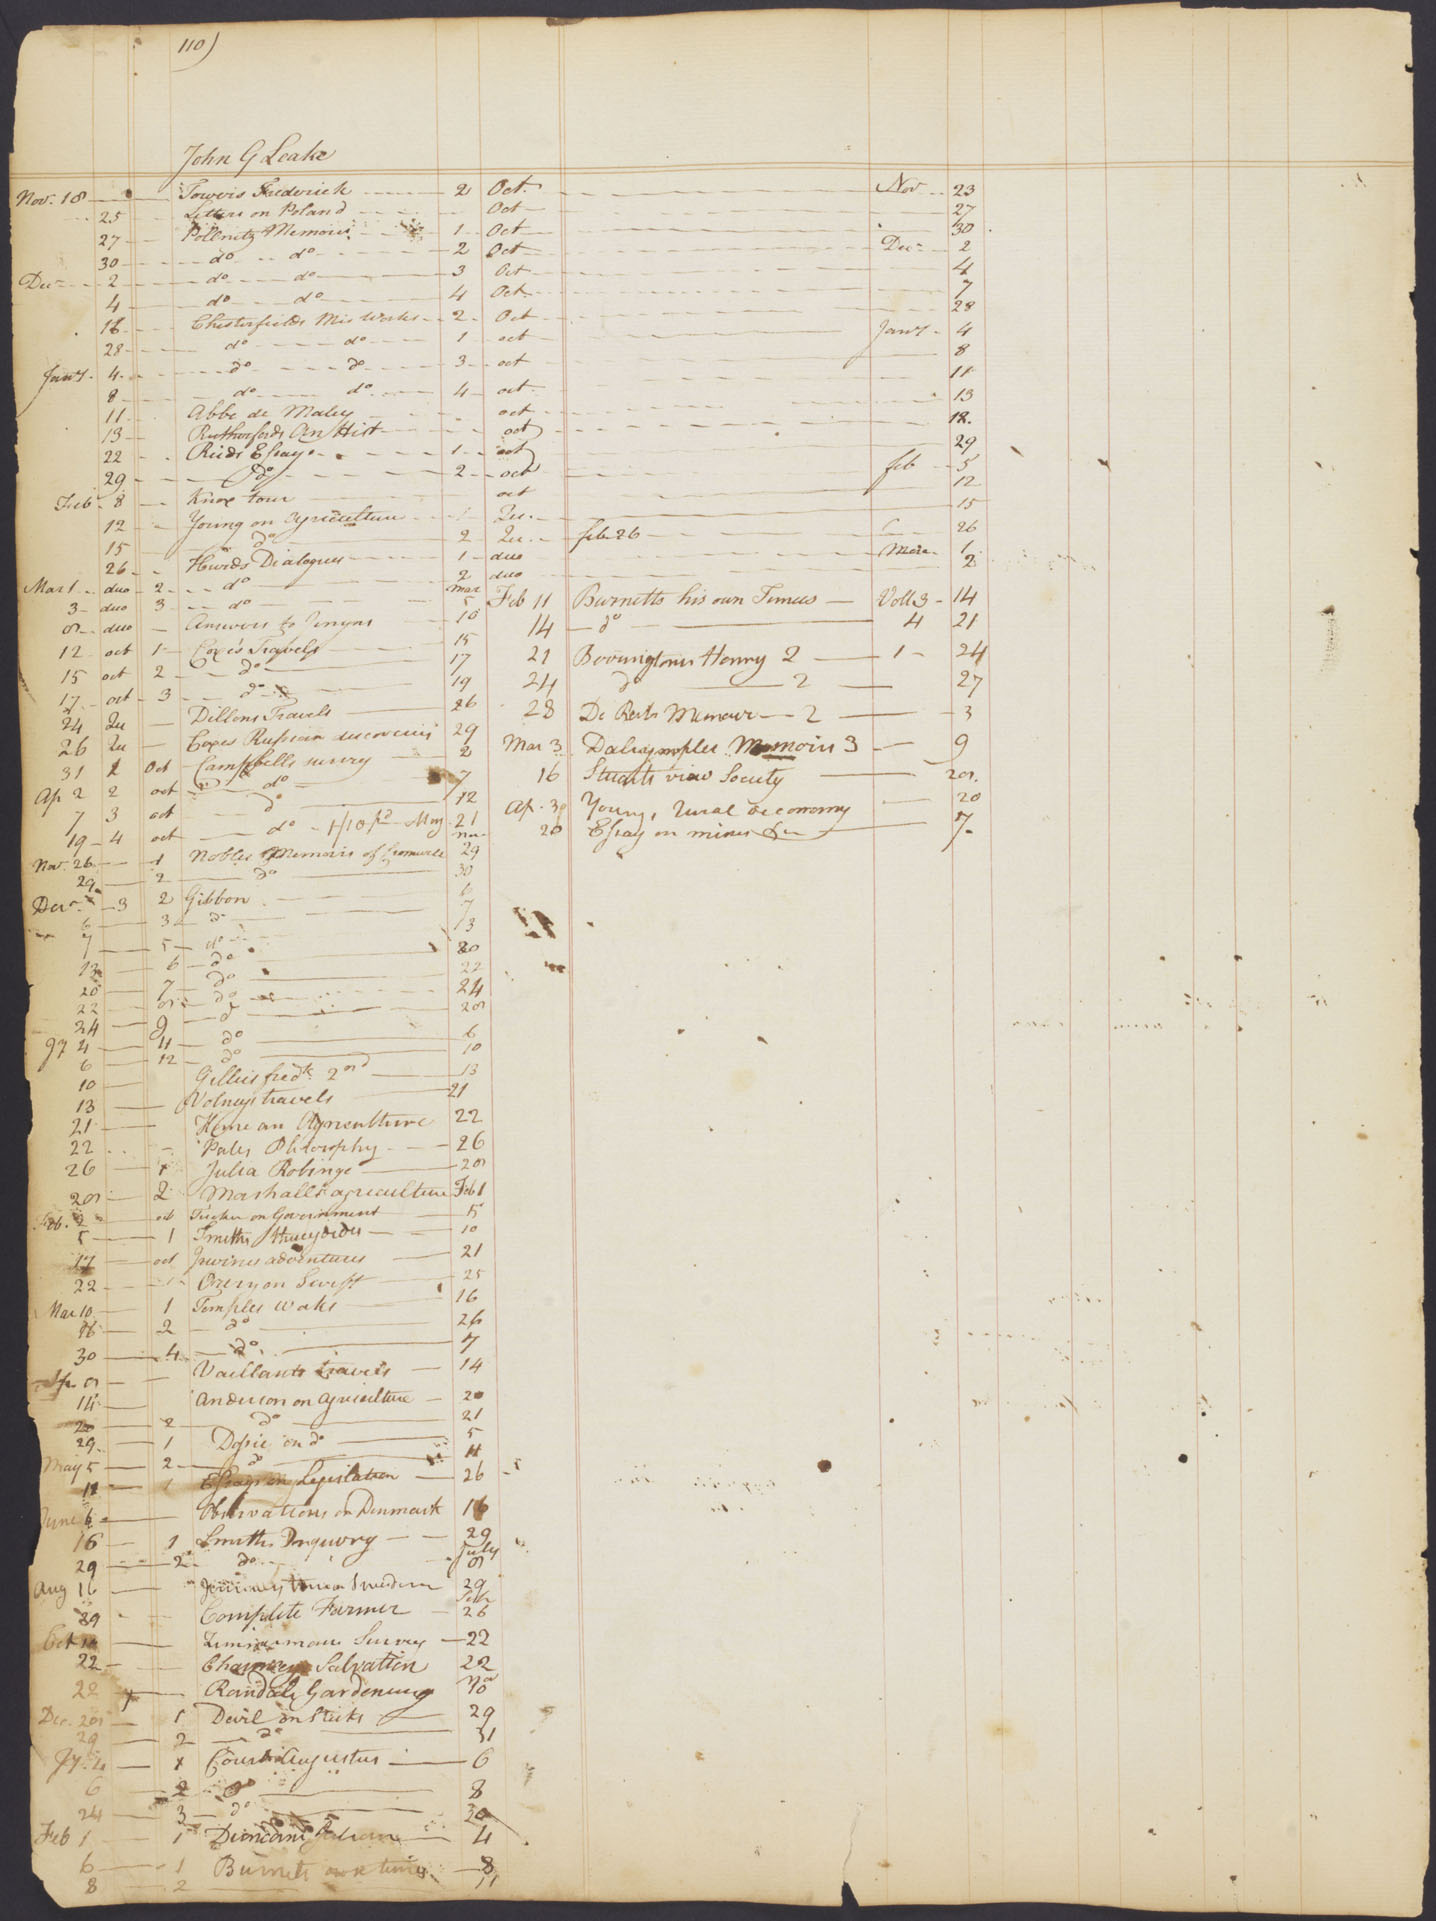 110)
John G Leake
Nov. 18 Towers Frederick 2 Oct. Nov 23
25 Letters on Poland Oct 27
27 Pollnitz Memoirs 1 Oct 30
30 do do 2 Oct Decr 2
Decr 2 do do 3 Oct 4
4 do do 4 Oct 7
18 Chesterfields Mis Works 2 Oct 28
28 do do 1 oct Jany 4
Jany 4 do do 3 oct 8
8 do do 4 oct 11
11 Abbe de Mabey oct 13
13 Rutherfords An Hist oct 18
22 Rieds Essays 1 oct 29
29 do 2 oct feb 5
Feb 8 Knox tour oct 12
12 Young on Agriculture 1 Qu. 15
15 do 2 Qu. feb 26 26
26 Hurds Dialogues 1 duo Mar 1
Mar 1 duo 2 do 2 duo 2
3 duo 3 do Mar 5 Feb 11 Burnetts his own Times Voll 3 14
8 duo Answers to 10 14 do 4 21
12 oct 1 Coxes Travels 15 21 Henry 2 1 24
15 oct 2 do 17 24 do 2 27
17 oct 3 do 19 28 De Rets Memoir 2 3
24 Qu Dillons Travels 26 Mar 3 Dalrymples Memoirs 3 9
26 Qu Coxes Russian discoveries 29 16 Stuarts view Society 28
31 1 Oct Campbells survey 2 Ap. 3 Young, Rural oeconomy 20
Ap 2 2 oct do 7 20 Essay on mines &c 7
7 3 oct do 12
19 4 oct do May 21
Nov. 26 1 Nobles Memoirs of Cromwell Nov 29
29 2 do 30
Decr 3 2 Gibbon 6
6 3 do 7
7 5 do 13
13 6 do 20
20 7 do 22
22 8 do 24
24 9 do 28
Jy 4 11 do 6
6 12 do 10
10 Gillies fredk 2nd 13
13 Volneys travels 21
21 Home on Agriculture 22
22 Paley Philosophy 26
26 Julia Robinge 28
28 2 Marshalls agriculture Feb 1
Feb. 2 oct Tucker on Government 5
5 1 Smiths Thucydides 10
17 oct Irwines adventures 21
22 Orery on Swift 25
Mar 10 1 Temples works 16
16 2 do 26
30 4 do 7
Ap 8 Vaillants travels 14
14 Anderson on agriculture 20
20 2 do 21
29 1 Dossie on do 5
May 5 2 do 11
11 1 Essays on Legislation 26
June 6 Observations on Denmark 16
16 1 Smiths Inquiry 29
29 2 do July 8
Aug 16 29
29 Complete Farmer Sept 26
Oct Zimmermans Survey 22
22 Salvation 22
22 Randals Gardening Nov 10
Dec. 28 1 Devil on Sticks 29
29 2 do 31
Jy. 4 Court Augustus 6
6 2 do 8
24 3 do 30
Feb 1 1 4
6 1 Burnets own times 8
8 2 11